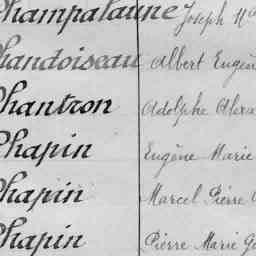 Champalaune Joseph Ma
Chandoiseau Albert Eugèn
Chantron Adolphe Alexa
Chapin Eugène Marie
Chapin Marcel Pierre
Chapin Pierre Marie Ge